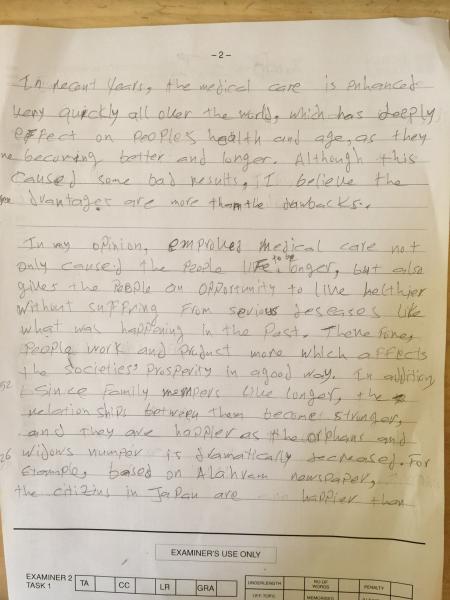 -2-
In recent years, the medical care is enhanced
very quickly all over the world, which has deeply
effect on people's health and age, as they
becoming better and longer. Although this
caused some bad results, I believe the
dvantages are more than the drawbacks.
In my opinion, emproved medical care not
only caused the people life to be longer, but also
gives the people an opportunity to live helthier
without suffring from serious deseases like
what was happening in the past. Therefore,
people work and product more which affects
the societies' prosperity in a good way. In addition,
52
since family mempers live longer, the
relation ships between them become stronger,
and they are happier as the orphans and
26
widows numper is dramatically decreased. For
Example, based on Alahram newspaper,
the citizins in Japan are happier than
EXAMINER'S USE ONLY
EXAMINER 2
TASK 1
TA
CC
LR
GRA
UNDERLENGTH
NO OF
WORDS
PENALTY
OFF-TOPIC
MEMORISED